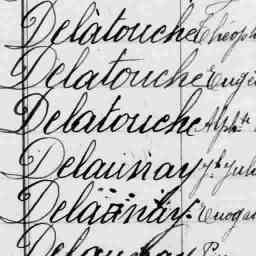 Delatouche Théoph
Delatouche Eugè
Delatouche Alph.
Delaunay Jh Jul
Delaunay
Delaunay